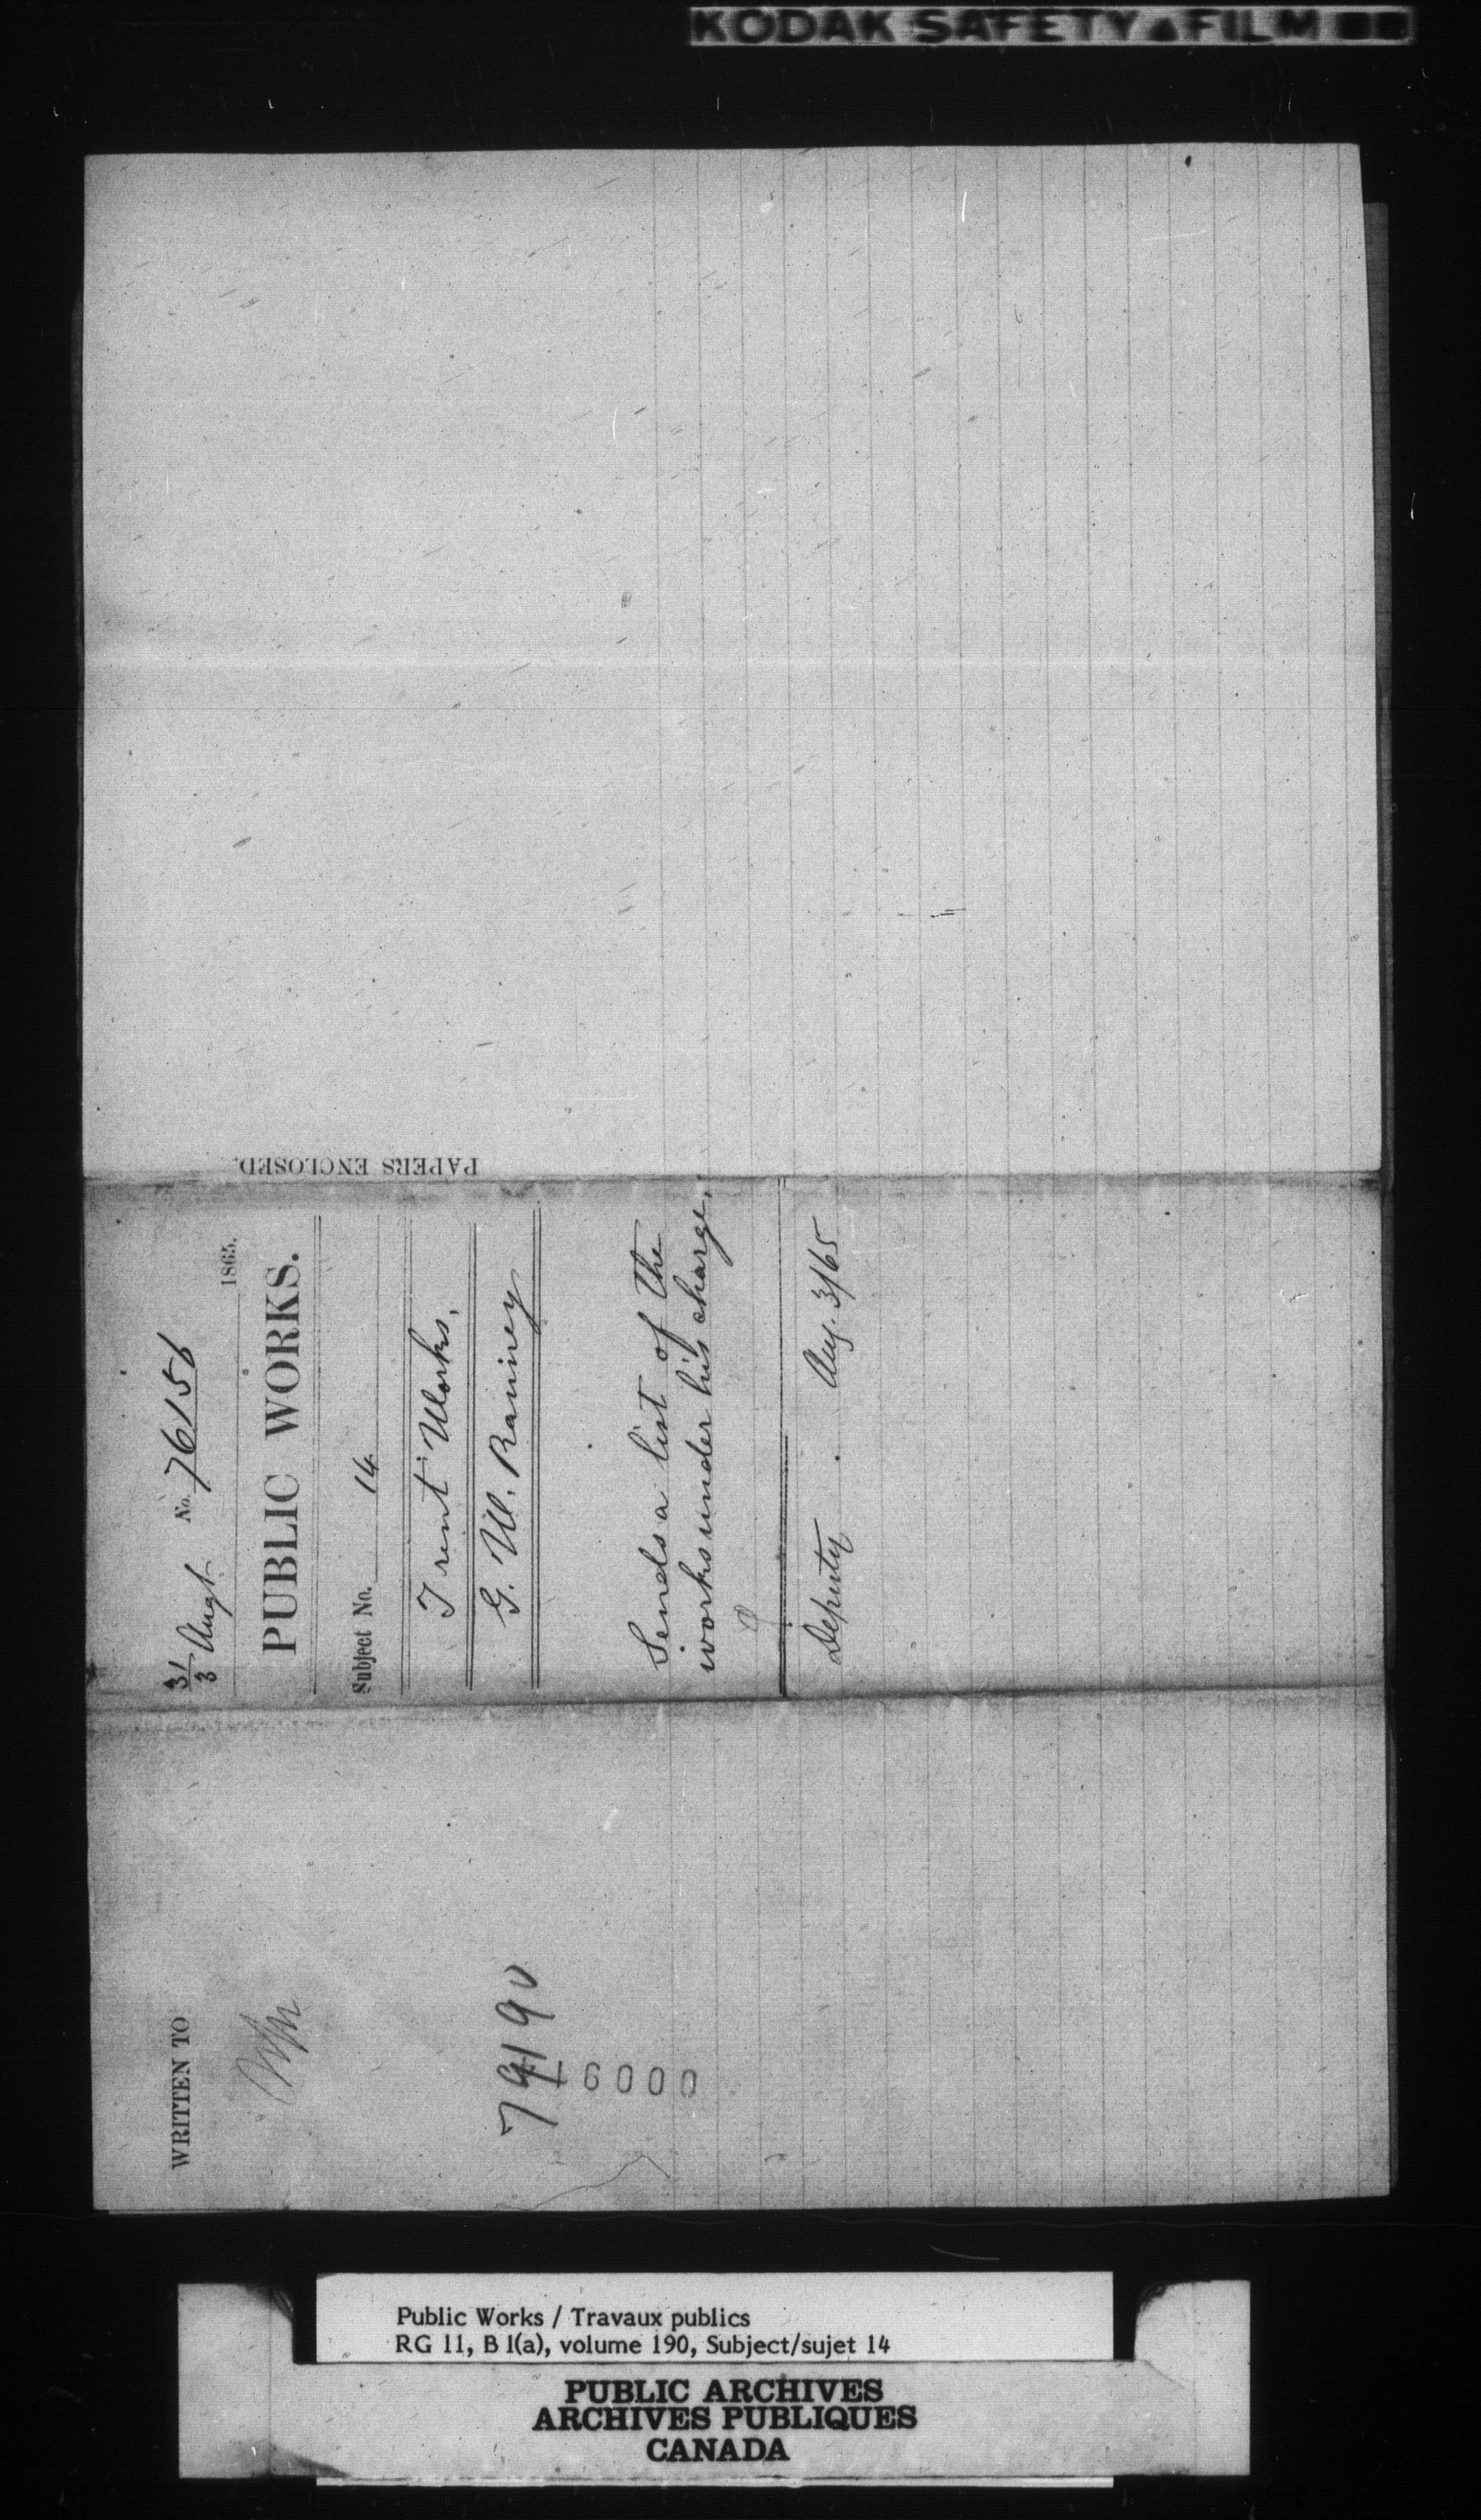 KODAK SAFETY FILM
PAPERS ENCLOSED.
31/3 Augt. No. 76156
1865.
PUBLIC WORKS.
Subject No. 14
Trent Works.
G. W. Ranney
Sends a list of the
works under his charge.
Deputy. Aug. 3/65
WRITTEN TO
79190
16000
Public Works / Travaux publics
RG 11, B 1(a), volume 190, Subject/sujet 14
PUBLIC ARCHIVES
ARCHIVES PUBLIQUES
CANADA